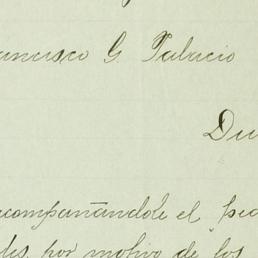 Francisco G. Palacio
Du
acompañándole el
por motivo de los